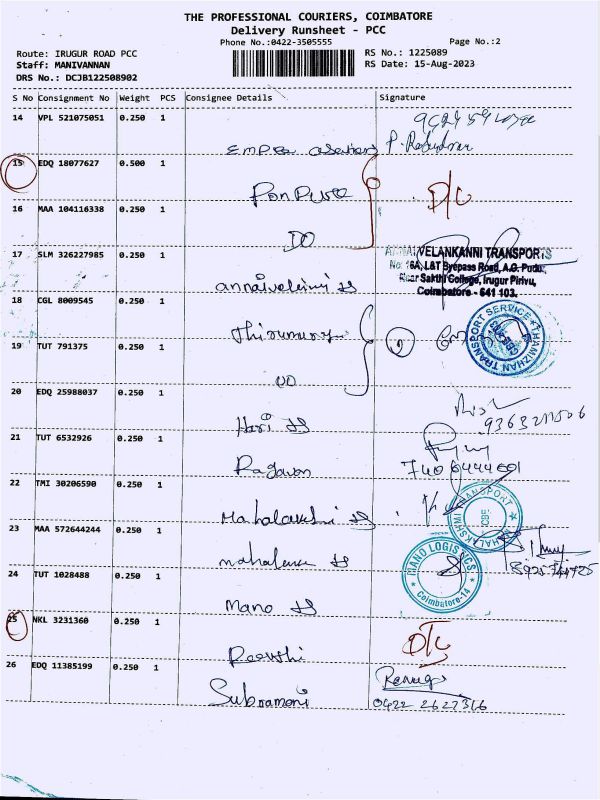 THE PROFESSIONAL COURIERS, COIMBATORE
Delivery Runsheet - PCC
Phone No.:0422-3505555
Page No.:2
Route: IRUGUR ROAD PCC
RS No.: 1225089
Staff: MANIVANNAN
RS Date: 15-Aug-2023
DRS No.: DCJB122508902
S No Consignment No Weight PCS Consignee Details Signature
14 VPL 521075051 0.250 1
15 EDQ 18077627 0.500 1
PonPure
D/C
16 MAA 104116338 0.250 1
DO
17 SLM 326227985 0.250 1
VELANKANNI TRANSPORTS
No: 16A, L&T Byepass Road, A.G. Pudur,
Near Sakthi College, Irugur Pirivu,
Coimbatore - 641 103.
18 CGL 8009545 0.250 1
THAMIZHAN TRANSPORT SERVICE
19 TUT 791375 0.250 1
20 EDQ 25988037 0.250 1
Hari
21 TUT 6532926 0.250 1
Ragavan
22 TMI 30206590 0.250 1
Mahalakshmi
MAHALAKSHMI TRANSPORT
CBE
23 MAA 572644244 0.250 1
MANO LOGISTICS
Coimbatore-14
24 TUT 1028488 0.250 1
Mano
25 NKL 3231360 0.250 1
26 EDQ 11385199 0.250 1
Subramani
0422 2627366